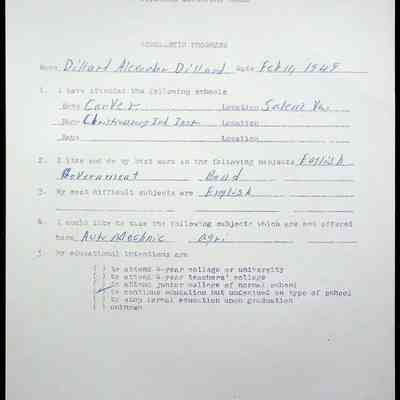 SCHOLASTIC PROGRESS
Name Dillard Alexander Dillard Date Feb 14, 1949
1. I have attended the following schools
Name Carver Location Salem Va.
Name Christiansburg Ind Inst Location
Name Location
2. I like and do my best work in the following subjects English
Government Band
3. My most difficult subjects are English
4. I would like to take the following subjects which are not offered
here Auto Mechnic agri
5. My educational intentions are
( ) to attend 4-year college or university
( ) to attend 4-year teachers' college
( ) to attend junior college of normal school
( ) to continue education but undecided on type of school
( ) to stop formal education upon graduation
( ) unknown